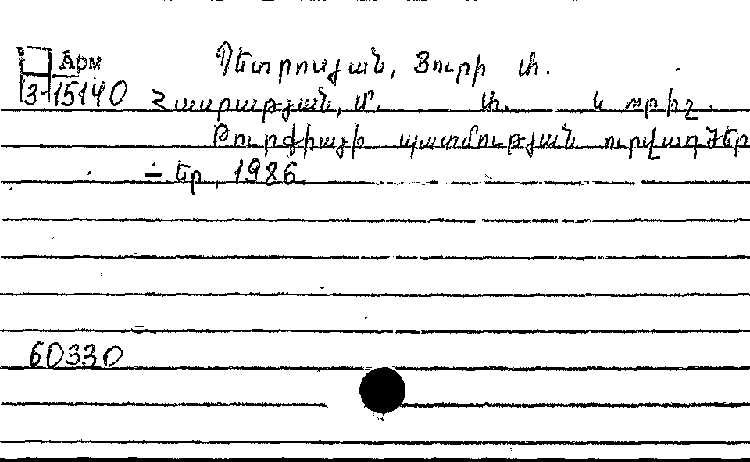 Արm Պետրոսյան, Յուրի Ա.
3-15140 Հասրաթյան, Մ. Ա. և ուրիշ.
Թուրքիայի պատմության ուրվագծեր
÷ Եր., 1986.
60330